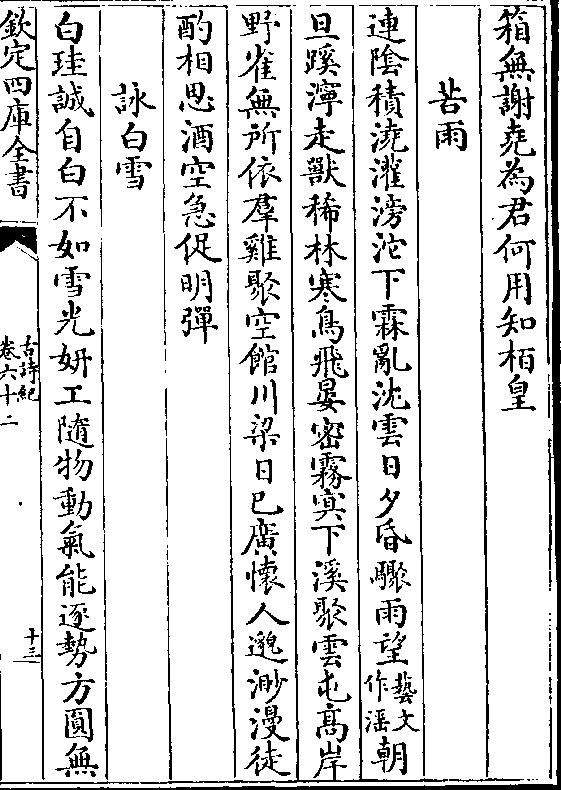 箱無謝堯為君何用知栢皇
苦雨
連陰積澆灌滂沱下霖亂沈雲日夕昏驟雨望藝文作滛朝
旦蹊濘走獸稀林寒鳥飛晏密霧㝠下溪聚雲屯高岸
野雀無所依羣雞聚空館川梁日已廣懷人邈渺漫徒
酌相思酒空急促明彈
詠白雪
白珪誠自白不如雪光妍工隨物動氣能逐勢方圓無
欽定四庫全書
古詩紀
卷六十二
十三